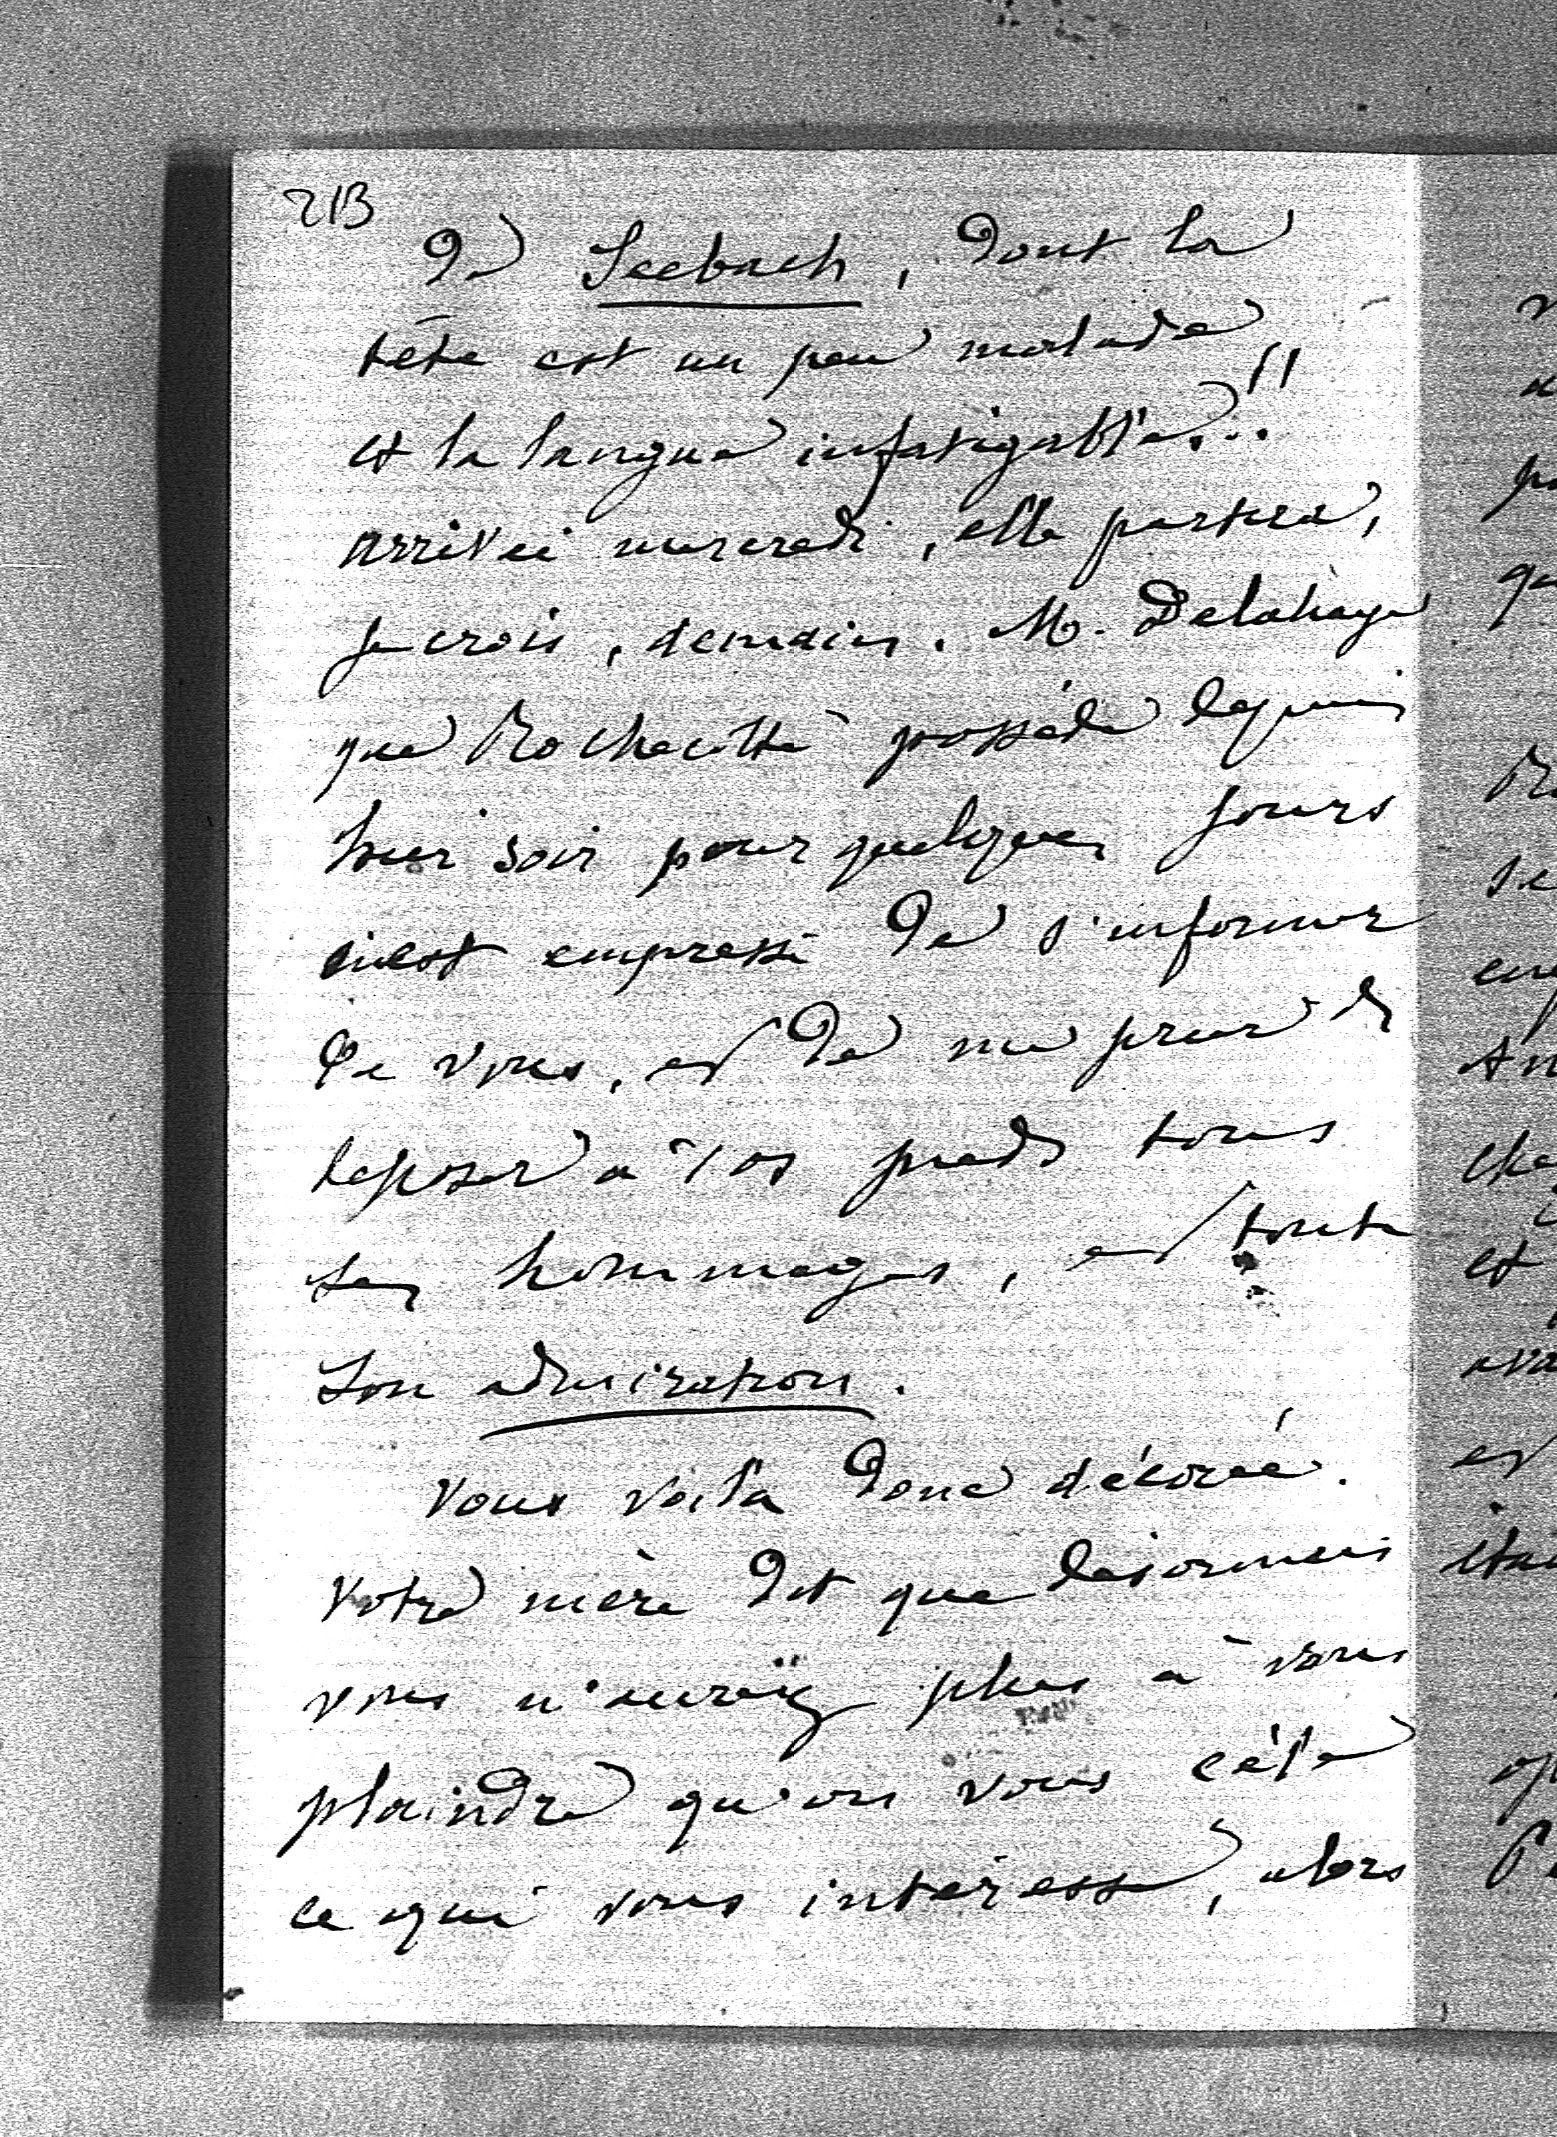 213
De Seebach, dont la
tête est un peu malade
et la langue infatigable..!!
arrivée mercredi, elle partira,
je crois, demain. M. Delahaye
que Rochecotte possède depuis
hier soir pour quelques jours
s'est empressé de s'informer
de vous, et de me prier de
déposer à vos pieds tous
ses hommages, et toute
son admiration.
Vous voilà donc décorée.
Votre mère dit que désormais
vous n'aurez plus à vous
plaindre qu'on vous cèle
ce qui vous intéresse, alors